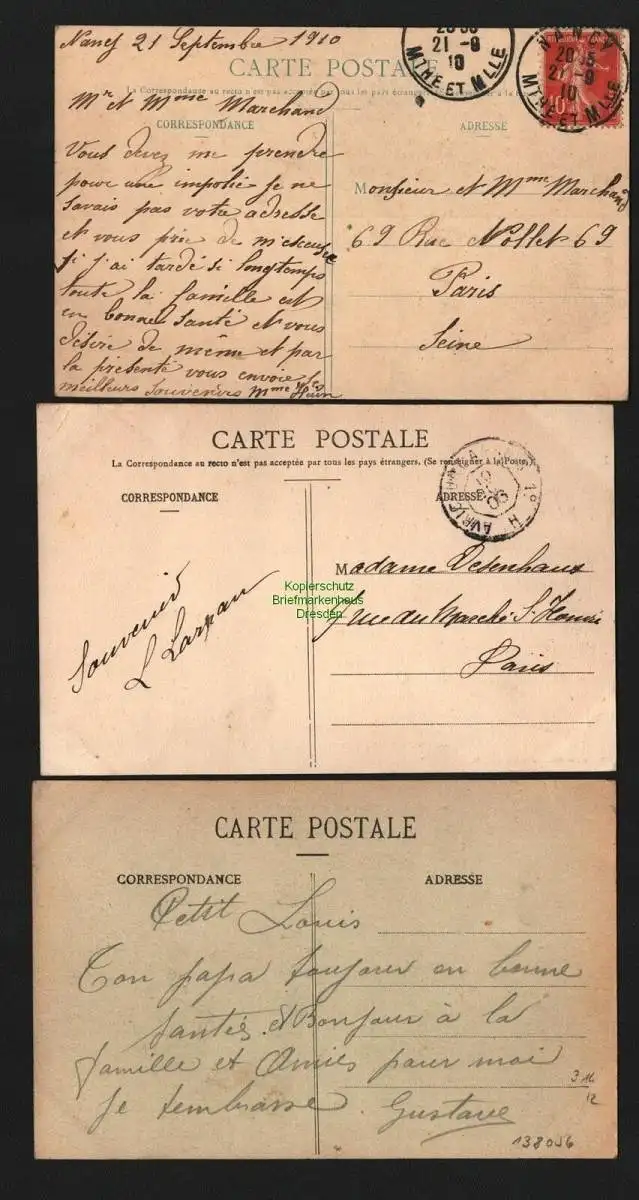 Nancy 21 Septembre 1910
CARTE POSTALE
La Correspondance au recto n'est pas acceptée par tous les pays étrangers
CORRESPONDANCE
ADRESSE
Mr et Mme Marchand
Vous devez me prendre
pour une impolie je ne
savais pas votre adresse
et vous prie de m'escuse
si j'ai tardé si longtemps
toute la famille est
en bonne santé et vous
désire de même et par
la présente vous envoie
meilleurs souvenirs Mme
Monsieur et Mme Marchand
69 Rue Nollet 69
Paris
Seine
21 -9
10
MTHE ET MLLE
NANCY
21 -9
10
MTHE ET MLLE
CARTE POSTALE
La Correspondance au recto n'est pas acceptée par tous les pays étrangers. (Se renseigner à la Poste.)
CORRESPONDANCE
ADRESSE
Souvenir
Madame Desenhaus
rue du Marché St Honoré
Paris
Kopierschutz
Briefmarkenhaus
Dresden
CARTE POSTALE
CORRESPONDANCE
ADRESSE
Petit Louis
Ton papa toujour en bonne
santiés et Bonjour à la
famille et Amies pour moi
Je tembrasse Gustave
3 16
12
138056